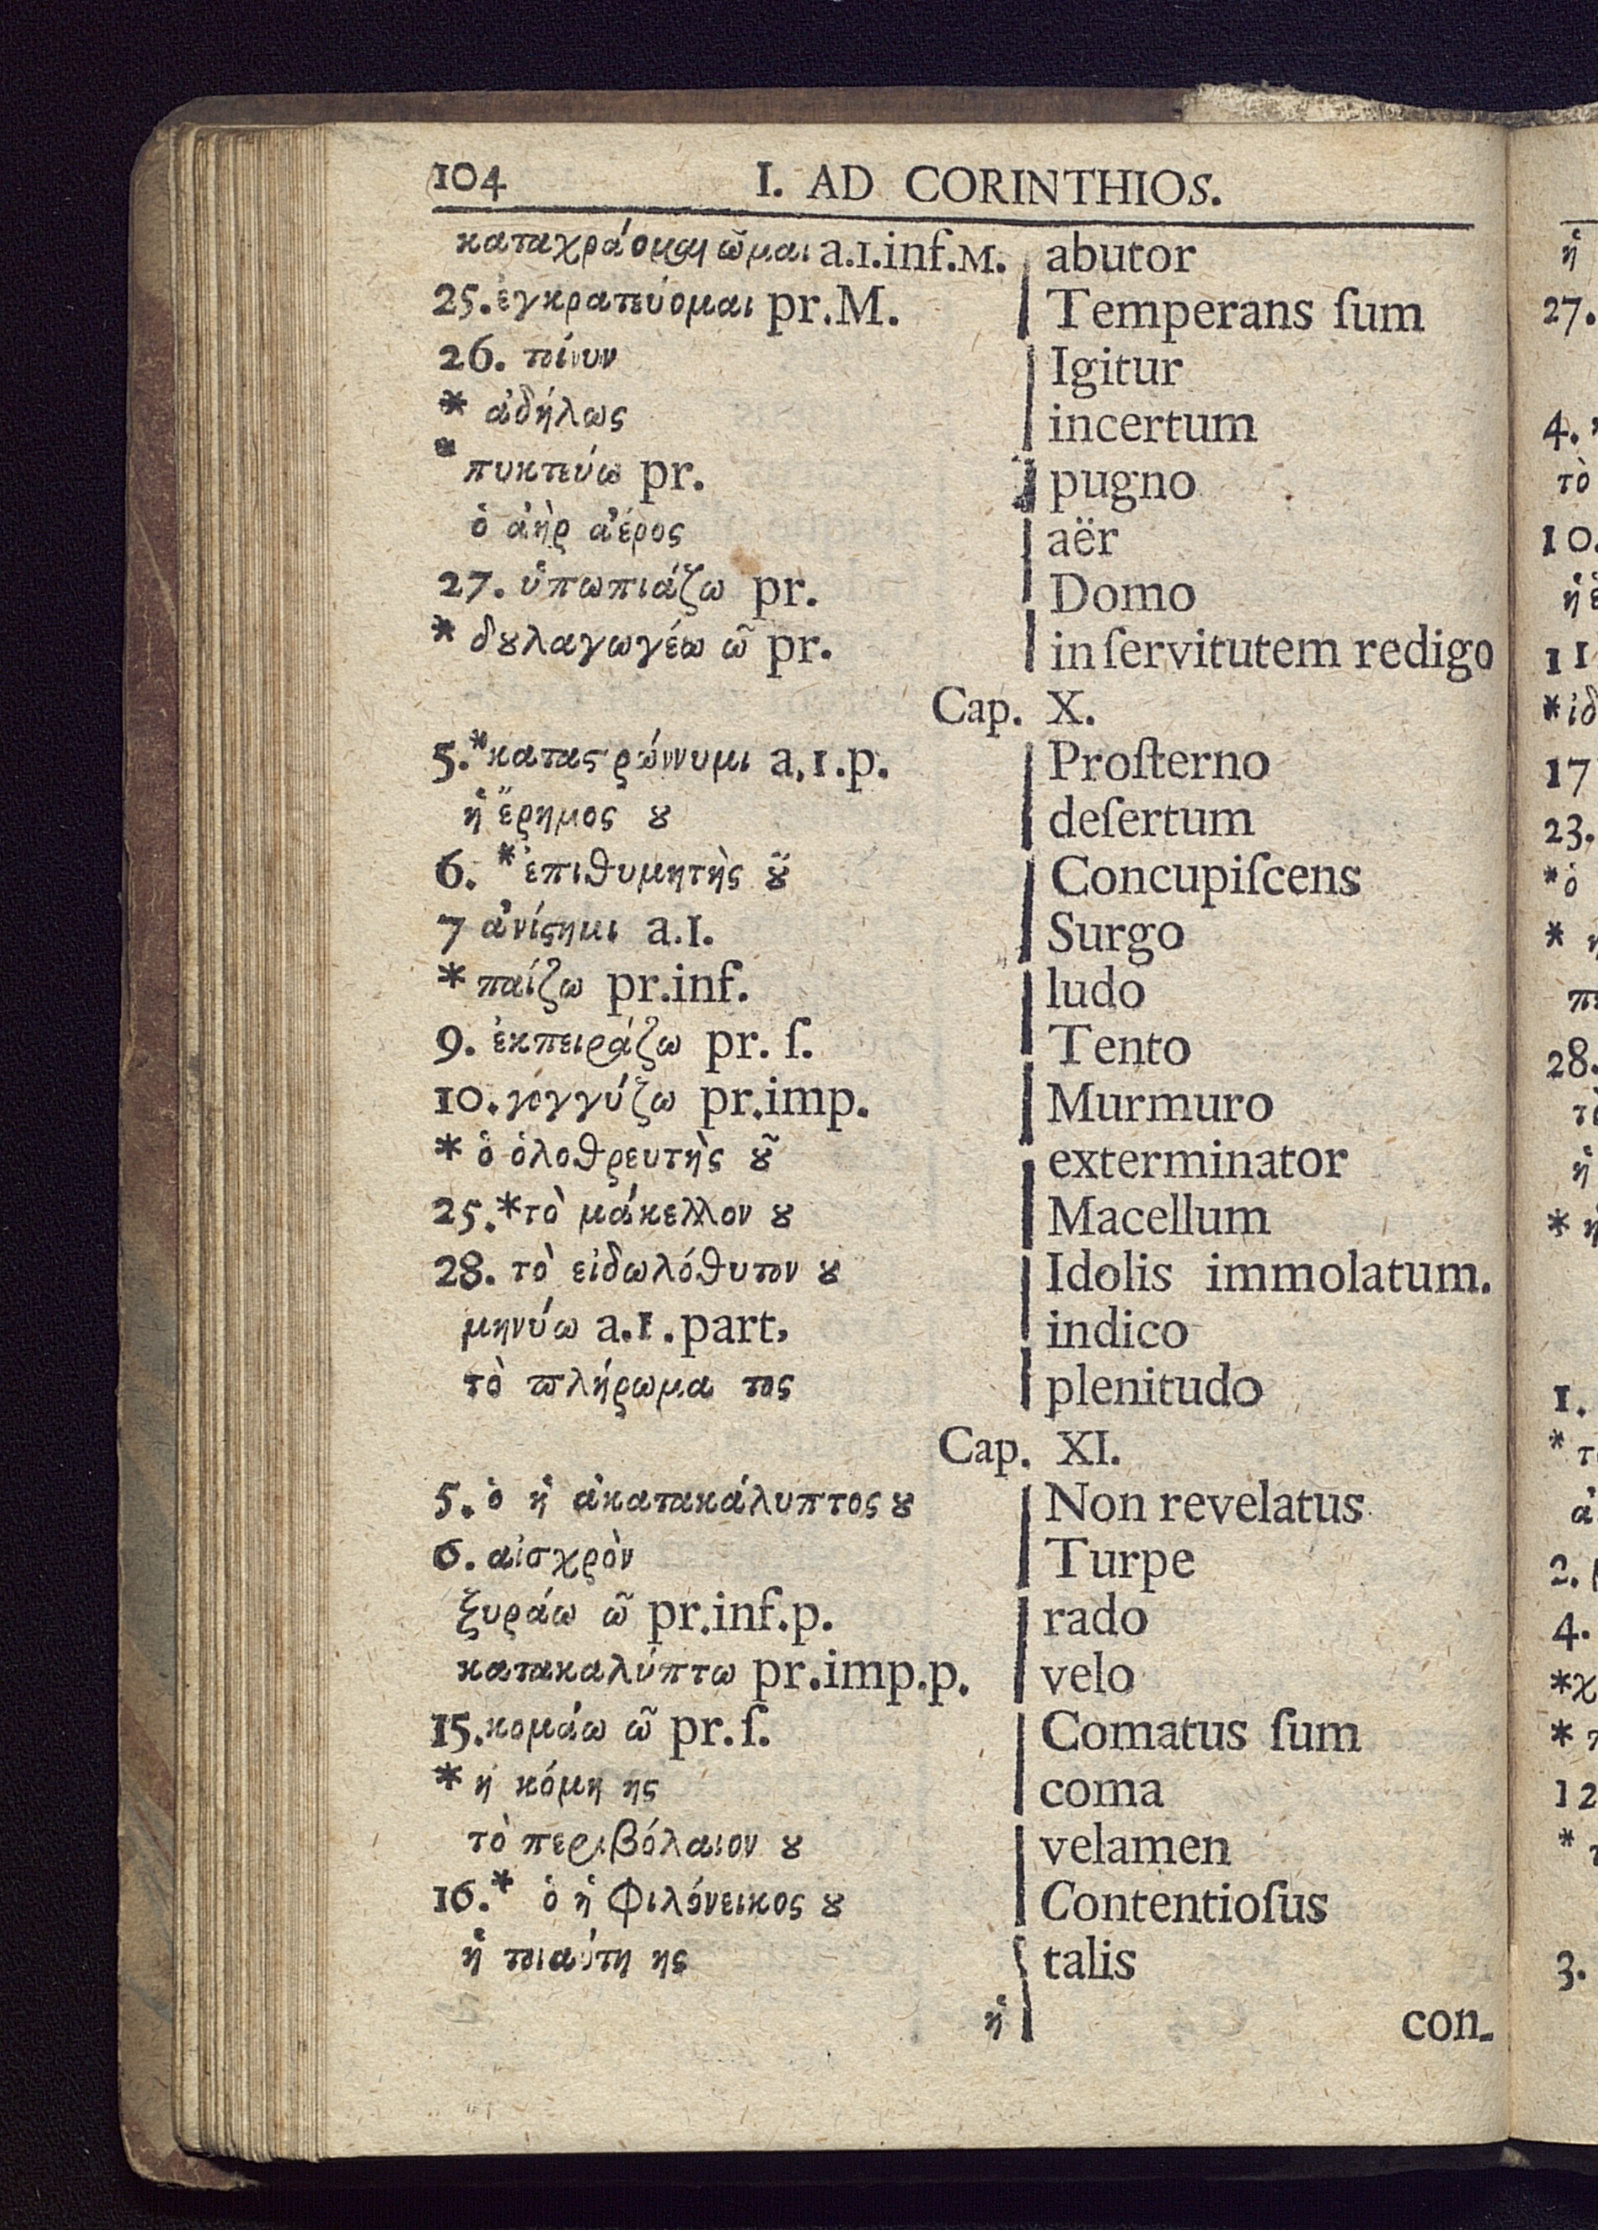 104 I. AD CORINTHIOS.
καταχράομαι ῶμαι a.1.inf.M. abutor
25. ἐγκρατεύομαι pr.M. Temperans ſum
26. τοίνυν Igitur
* ἀδήλως incertum
* πυκτεύω pr. pugno
ὁ ἀὴρ ἀέρος aër
27. ὑπωπιάζω pr. Domo
* δȣλαγωγέω ῶ pr. in ſervitutem redigo
Cap. X.
5.*καταςρώννυμι a.1.p. Proſterno
ἡ ἔρημος ȣ deſertum
6. *ἐπιθυμητὴς ȣ͂ Concupiſcens
7 ἀνίςημι a.1. Surgo
* παίζω pr.inf. ludo
9. ἐκπειράζω pr. ſ. Tento
10. γογγύζω pr.imp. Murmuro
* ὁ ὀλοθρευτὴς ȣ͂ exterminator
25.*τὸ μάκελλον ȣ Macellum
28. τὸ εἰδωλόθυτον ȣ Idolis immolatum.
μηνύω a.1.part, indico
τὸ πλήρωμα τος plenitudo
Cap. XI.
5. ὁ ἡ ἀκατακάλυπτος ȣ Non revelatus
6. αἰσχρὸν Turpe
ξυράω ῶ pr.inf.p. rado
κατακαλύπτω pr.imp.p. velo
15. κομάω ῶ pr.ſ. Comatus ſum
* ἡ κόμη ης coma
τὸ περιβόλαιον ȣ velamen
16.* ὁ ἡ φιλόνεικος ȣ Contentioſus
ἡ τοιαύτη ης talis
ἡ con-
ἡ
27.
4.
τὸ
10.
11
17
23.
*ὁ
28.
ἡ
1.
2.
4.
12
3.